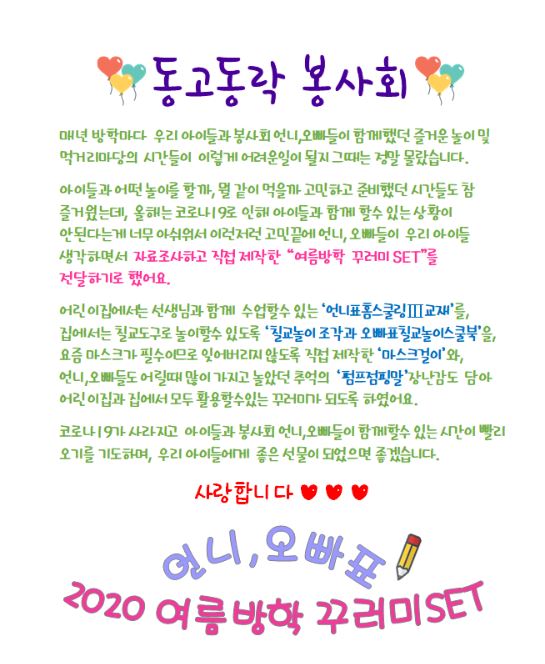 동고동락 봉사회
매년 방학마다 우리 아이들과 봉사회 언니,오빠들이 함께했던 즐거운 놀이 및
먹거리마당의 시간들이 이렇게 어려운일이 될지 그때는 정말 몰랐습니다.
아이들과 어떤 놀이를 할까, 뭘 같이 먹을까 고민하고 준비했던 시간들도 참
즐거웠는데, 올해는 코로나19로 인해 아이들과 함께 할수 있는 상황이
안된다는게 너무 아쉬워서 이런저런 고민끝에 언니, 오빠들이 우리 아이들
생각하면서 자료조사하고 직접 제작한 “여름방학 꾸러미 SET”를
전달하기로 했어요.
어린이집에서는 선생님과 함께 수업할수 있는 ‘언니표홈스쿨링Ⅲ교재’를,
집에서는 칠교도구로 놀이할수 있도록 ‘칠교놀이 조각과 오빠표칠교놀이스쿨북’을,
요즘 마스크가 필수이므로 잊어버리지 않도록 직접 제작한 ‘마스크걸이’와,
언니,오빠들도 어릴때 많이 가지고 놀았던 추억의 ‘펌프점핑말’장난감도 담아
어린이집과 집에서 모두 활용할수있는 꾸러미가 되도록 하였어요.
코로나19가 사라지고 아이들과 봉사회 언니,오빠들이 함께할수 있는 시간이 빨리
오기를 기도하며, 우리 아이들에게 좋은 선물이 되었으면 좋겠습니다.
사랑합니다 ♥ ♥ ♥
언니,오빠표
2020 여름방학 꾸러미SET